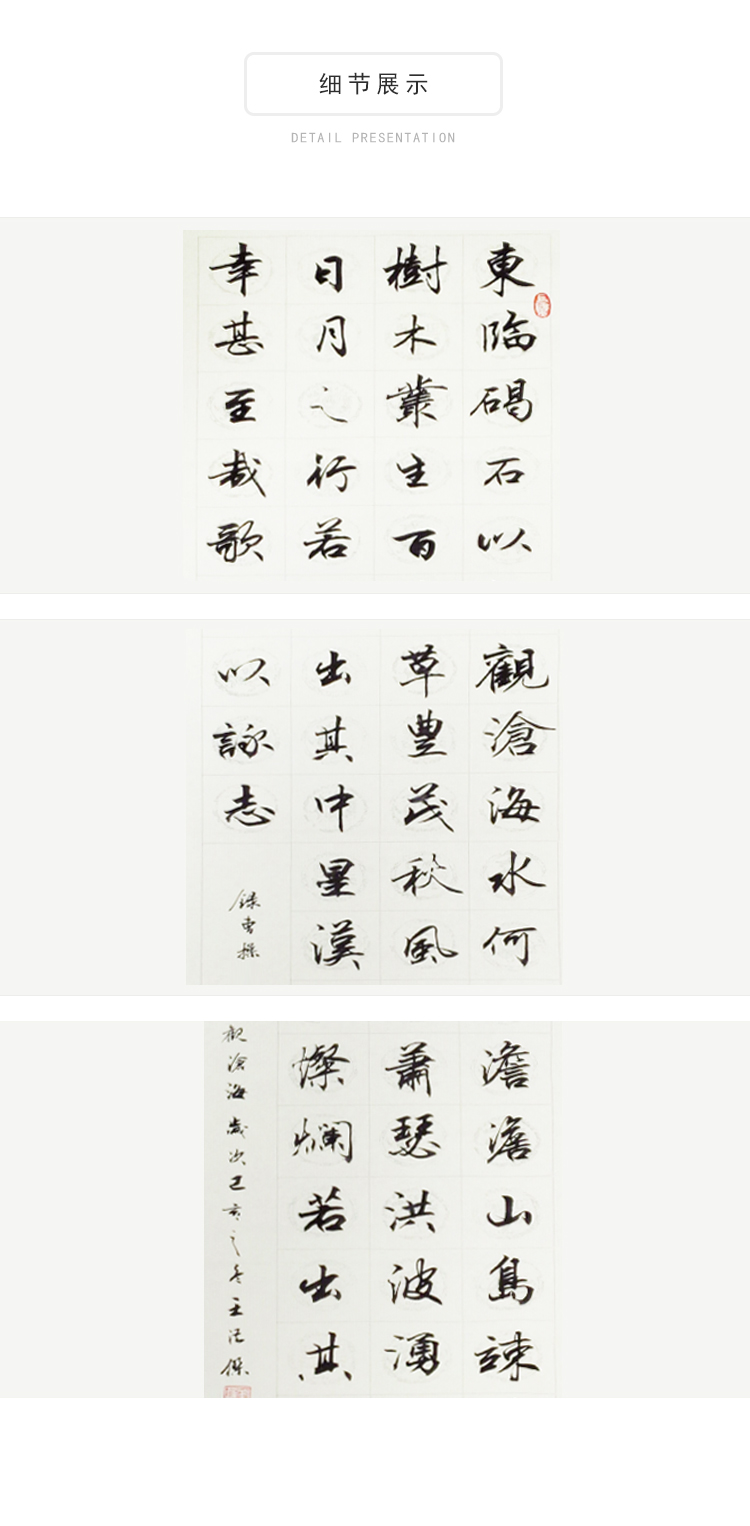 细节展示
DETAIL PRESENTATION
東臨碣石以
樹木叢生百
日月之行若
幸甚至哉歌
觀滄海水何
草豐茂秋風
出其中星漢
以詠志
錄曹操
澹澹山島竦
蕭瑟洪波湧
燦爛若出其
觀滄海歲次己亥之冬王